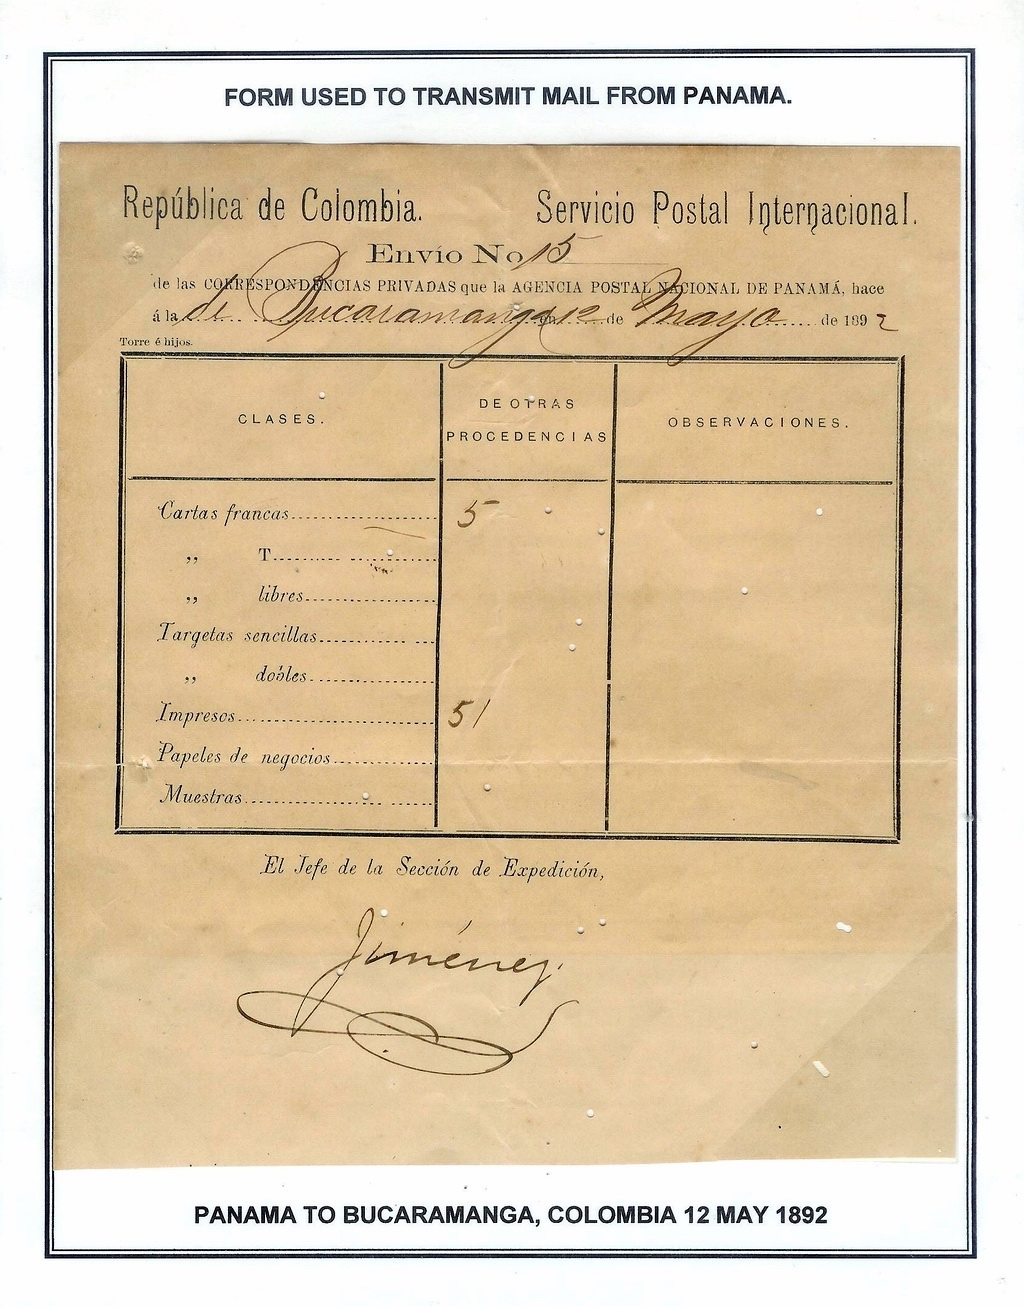 FORM USED TO TRANSMIT MAIL FROM PANAMA.
República de Colombia. Servicio Postal Internacional.
Envío No 15
de las CORRESPONDENCIAS PRIVADAS que la AGENCIA POSTAL NACIONAL DE PANAMÁ, hace
á la de Bucaramanga en 12 de Mayo de 1892
Torre é hijos.
CLASES. DE OTRAS PROCEDENCIAS OBSERVACIONES.
Cartas francas 5
,, T
,, libres
Targetas sencillas
,, dobles
Impresos 51
Papeles de negocios
Muestras
El Jefe de la Sección de Expedición,
Jiménez.
PANAMA TO BUCARAMANGA, COLOMBIA 12 MAY 1892